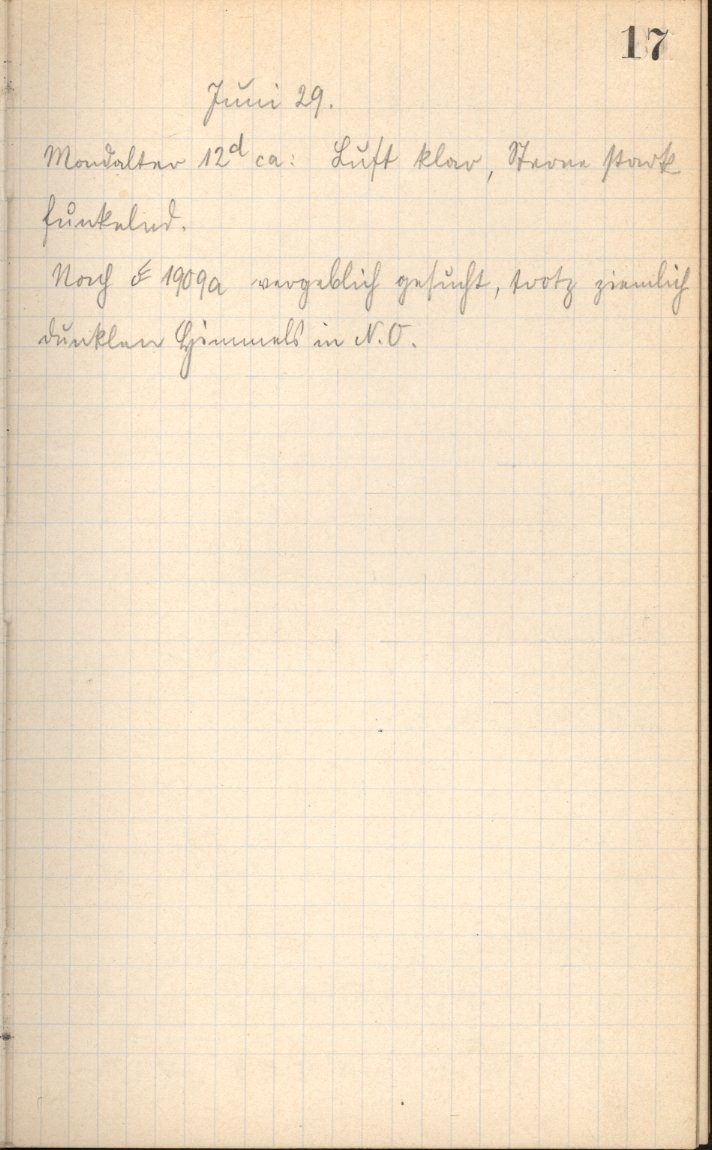 17
Juni 29.
Mondalter 12d ca: Luft klar, Sterne stark
funkelnd.
Nach ☄ 1909a vergeblich gesucht, trotz ziemlich
dunklen Himmels in N.O.